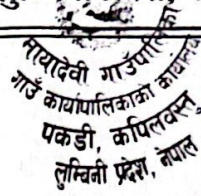 मायादेवी गाउँपालिका
गाउँ कार्यपालिकाको कार्यालय
पकडी, कपिलवस्तु
लुम्बिनी प्रदेश, नेपाल